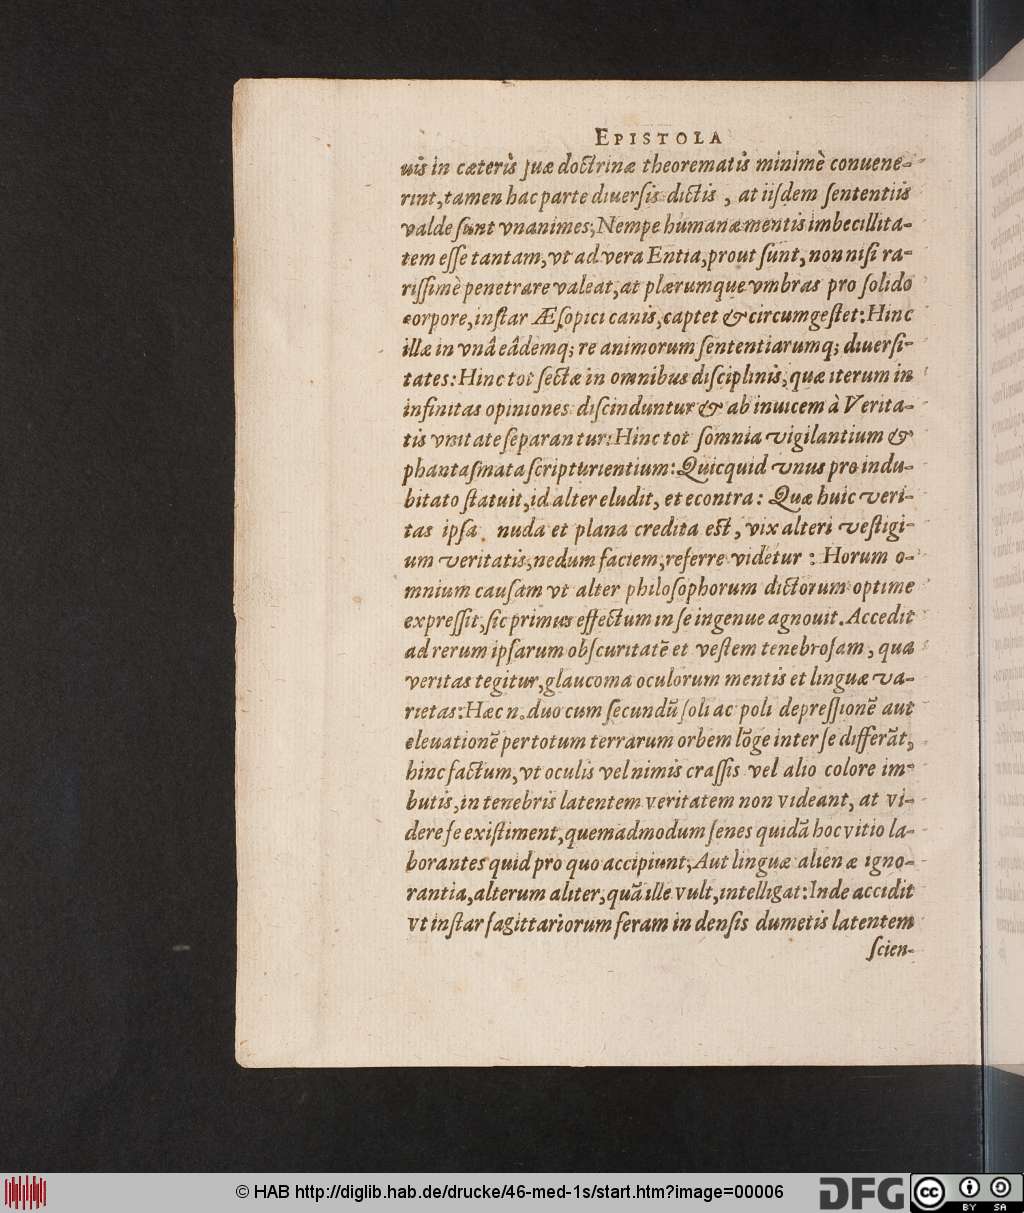 EPISTOLA
uis in cæteris suæ doctrinæ theorematis minimè conuene-
rint, tamen hac parte diuersis dictis, at iisdem sententiis
valde sunt vnanimes; Nempe humanæ mentis imbecillita-
tem esse tantam, vt ad vera Entia, prout sunt, non nisi ra-
rissimè penetrare valeat, at plærumque vmbras pro solido
corpore, instar Æsopici canis, captet & circumgestet: Hinc
illæ in vnâ eâdemq; re animorum sententiarumq; diuersi-
tates: Hinc tot sectæ in omnibus disciplinis, quæ iterum in
infinitas opiniones discinduntur & ab inuicem à Verita-
tis vnitate separantur: Hinc tot somnia vigilantium &
phantasmata scripturientium: Quicquid vnus pro indu-
bitato statuit, id alter eludit, et econtra: Quæ huic veri-
tas ipsa nuda et plana credita est, vix alteri vestigi-
um veritatis, nedum faciem, referre videtur: Horum o-
mnium causam vt alter philosophorum dictorum optime
expressit, sic primus effectum in se ingenue agnouit. Accedit
ad rerum ipsarum obscuritatē et vestem tenebrosam, qua
veritas tegitur, glaucoma oculorum mentis et linguæ va-
rietas: Hæc n. duo cum secundū soli ac poli depressionē aut
eleuationē per totum terrarum orbem lōge inter se differāt,
hinc factum, vt oculis vel nimis crassis vel alio colore im-
butis, in tenebris latentem veritatem non videant, at vi-
dere se existiment, quemadmodum senes quidā hoc vitio la-
borantes quid pro quo accipiunt; Aut linguæ alienæ igno-
rantia, alterum aliter, quā ille vult, intelligat: Inde accidit
vt instar sagittariorum feram in densis dumetis latentem
scien-
© HAB http://diglib.hab.de/drucke/46-med-1s/start.htm?image=00006
DFG
cc
BY SA